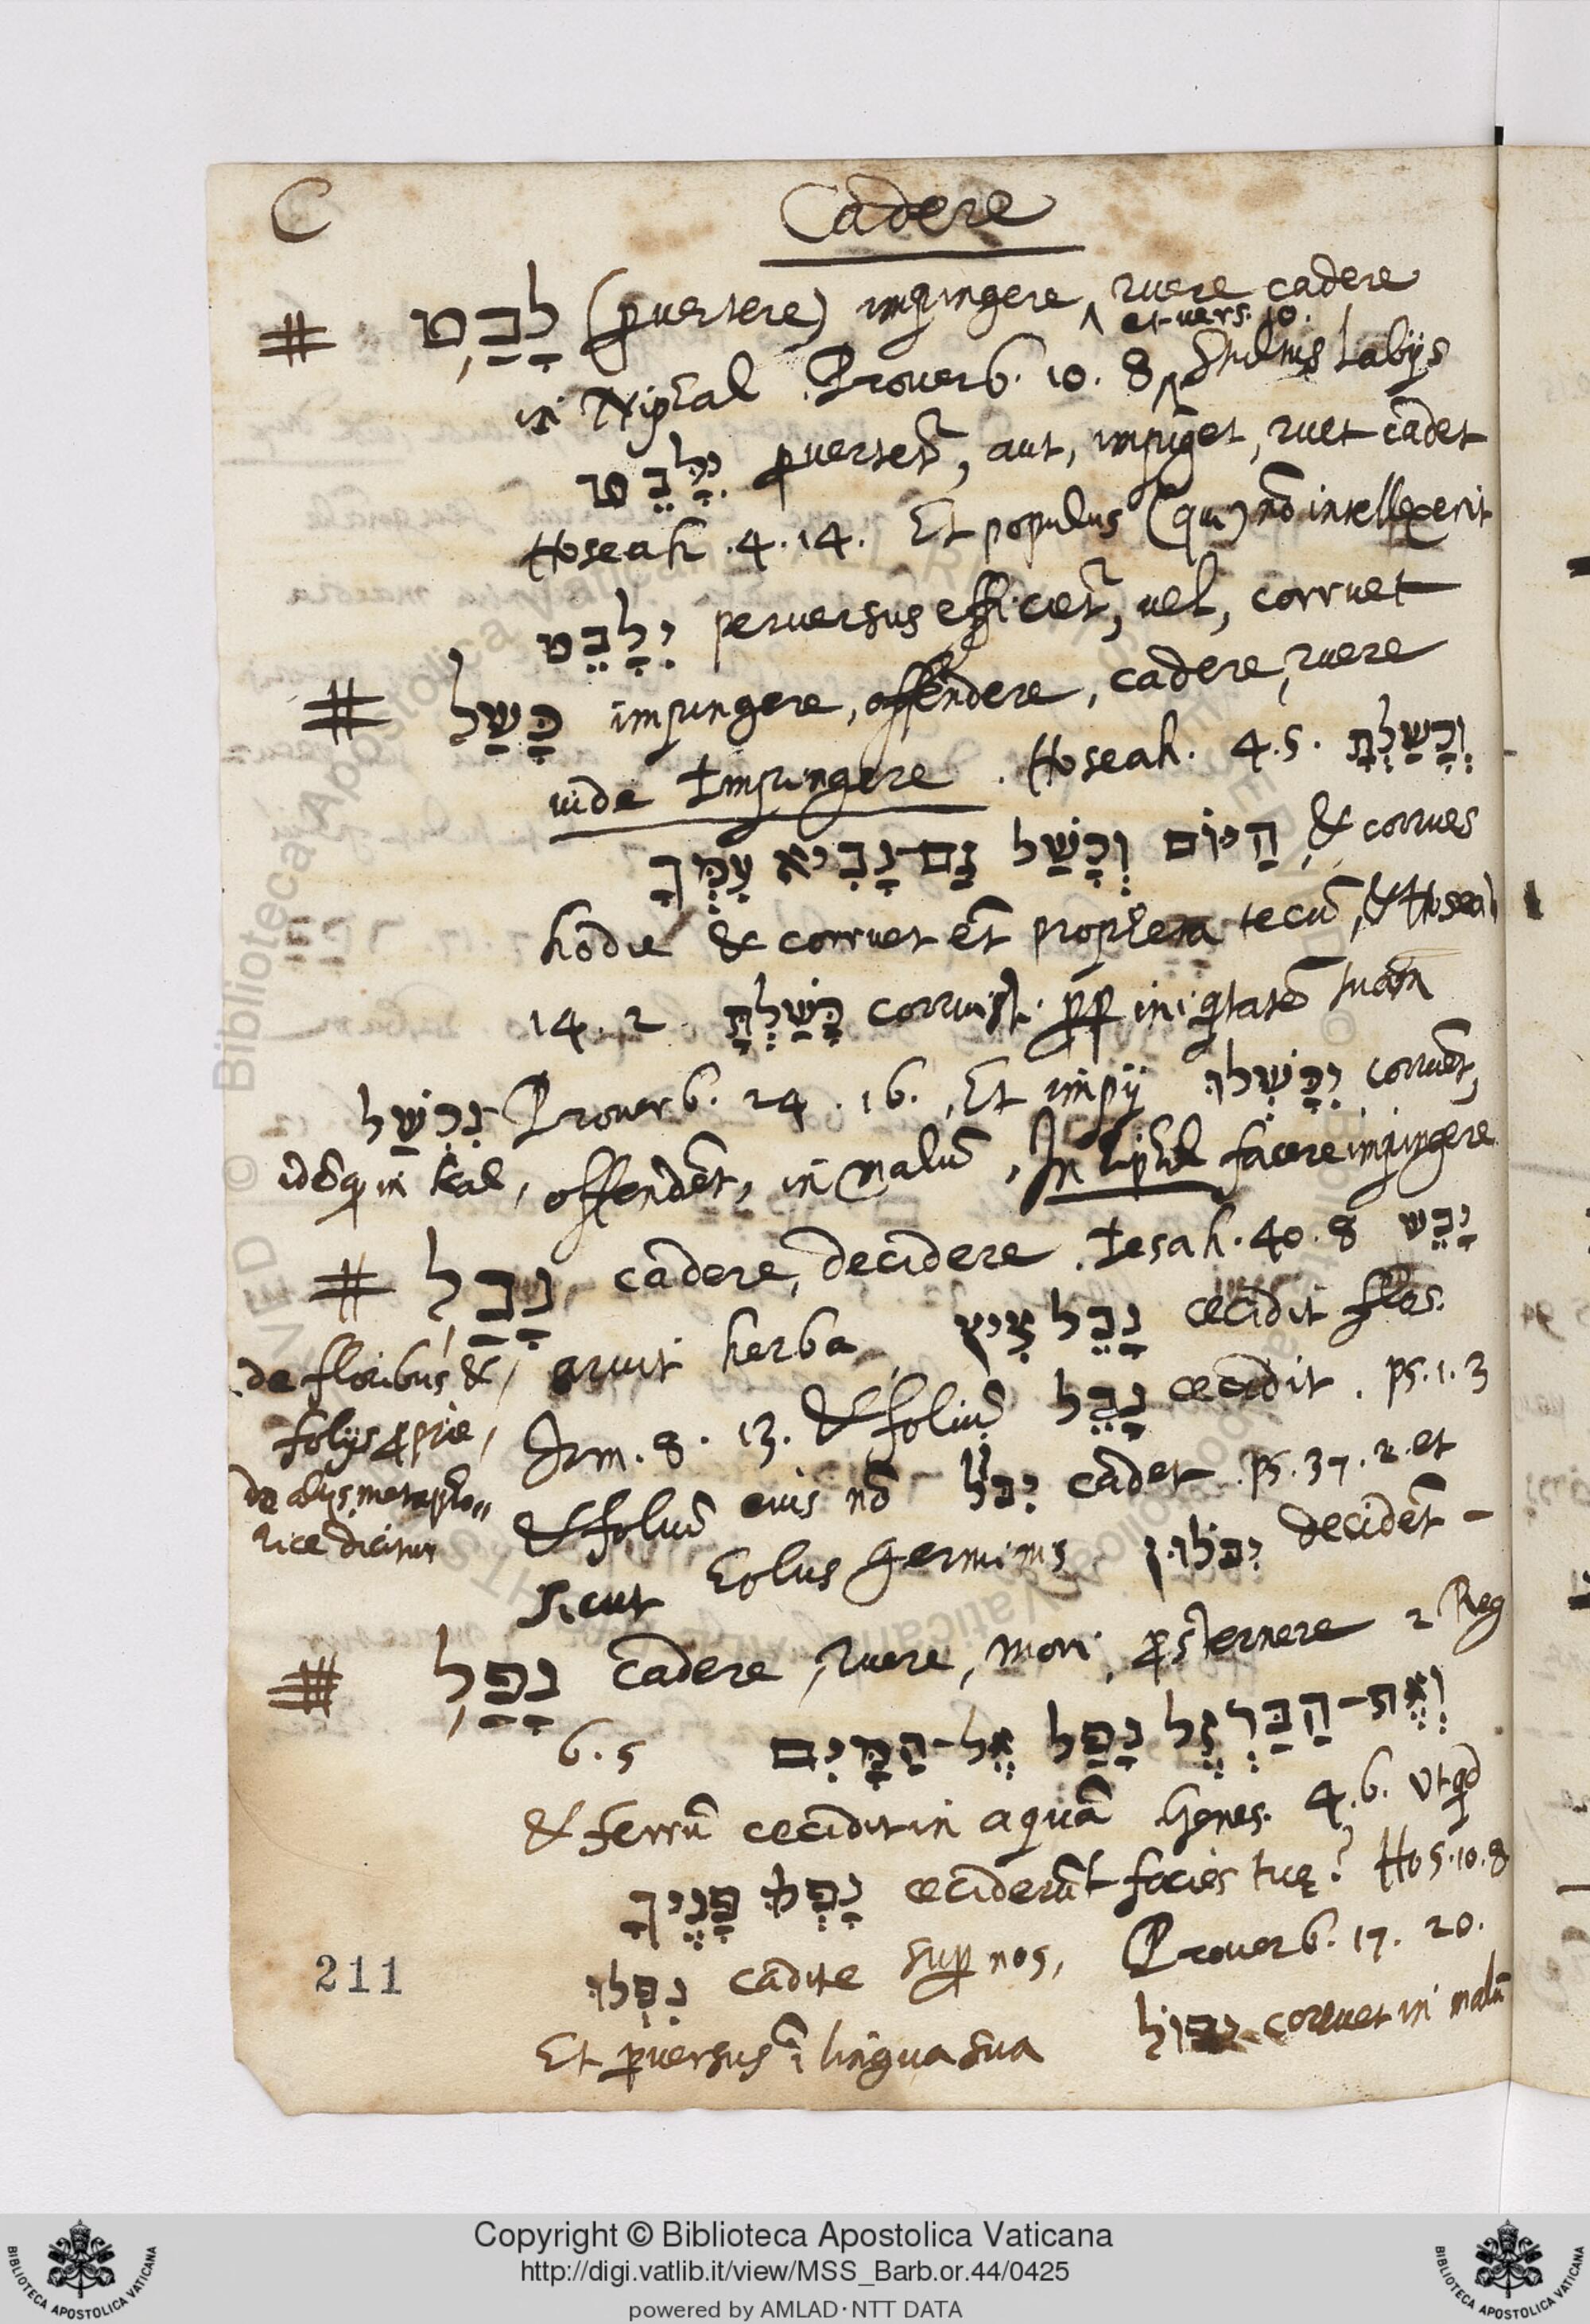 C Cadere
# לָבַט (ꝑuertere) impingere, ruere cadere
et vers. 10.
in Niphal Prouerb. 10. 8 Stultus Labijs
יִלָּבֵט ꝑuertet̃, aut, impiget, ruet cadet
Hoseah .4.14. Et populus (qui) nõ intellexerit
יִלָּבֵט peruersus efficiet̃, uel, corruet
# כָּשַׁל impingere, offendere, cadere, ruere
uide Impingere . Hoseah. 4.5. וְכָשַׁלְתָּ
הַיּוֹם וְכָשַׁל גַּם־נָבִיא עִמְּךָ, & corrues
hodie & corruet et̃ propheta tecũ, & Hoseah
14.2 כָשַׁלְתָּ corruisti ꝓꝑ iniqtatẽ tuam
נִכְשַׁל Prouerb. 24.16. Et impij יִכָּשְׁלוּ corruẽt,
idẽq in kal, offendẽt, in malũ, In hiphil facere impingere
# נָבַל cadere, decidere . Iesah. 40.8 יָבֵשׁ
de floribus &, aruit herba, נָבֵל צִיץ cecidit flos.
folijs ꝓprie, Irm. 8. 13. & foliũ נָבֵל cecidit . ps. 1.3
de alijs metapho„ & foliũ eius nõ יִבּוֹל cadet . ps. 37.2. et
rice dicitur
sicut holus germinis יִבּוֹלוּן decidẽt -
# נָפַל cadere, ruere, mori, ꝓsternere 2 Reg
6.5 וְאֶת־הַבַּרְזֶל נָפַל אֶל־הַמָּיִם
& ferrũ cecidit in aquã Genes. 4.6. Vt qd
נָפְלוּ פָנֶיךָ ceciderũt facies tuę? Hos. 10.8
נִפְלוּ cadite suꝑ nos, Prouerb. 17. 20.
Et ꝑuersus ĩ lingua sua יִפּוֹל corruet in malũ
211
Copyright © Biblioteca Apostolica Vaticana
http://digi.vatlib.it/view/MSS_Barb.or.44/0425
powered by AMLAD·NTT DATA
BIBLIOTECA APOSTOLICA VATICANA
BIBLIOTECA APOSTOLICA VATICANA